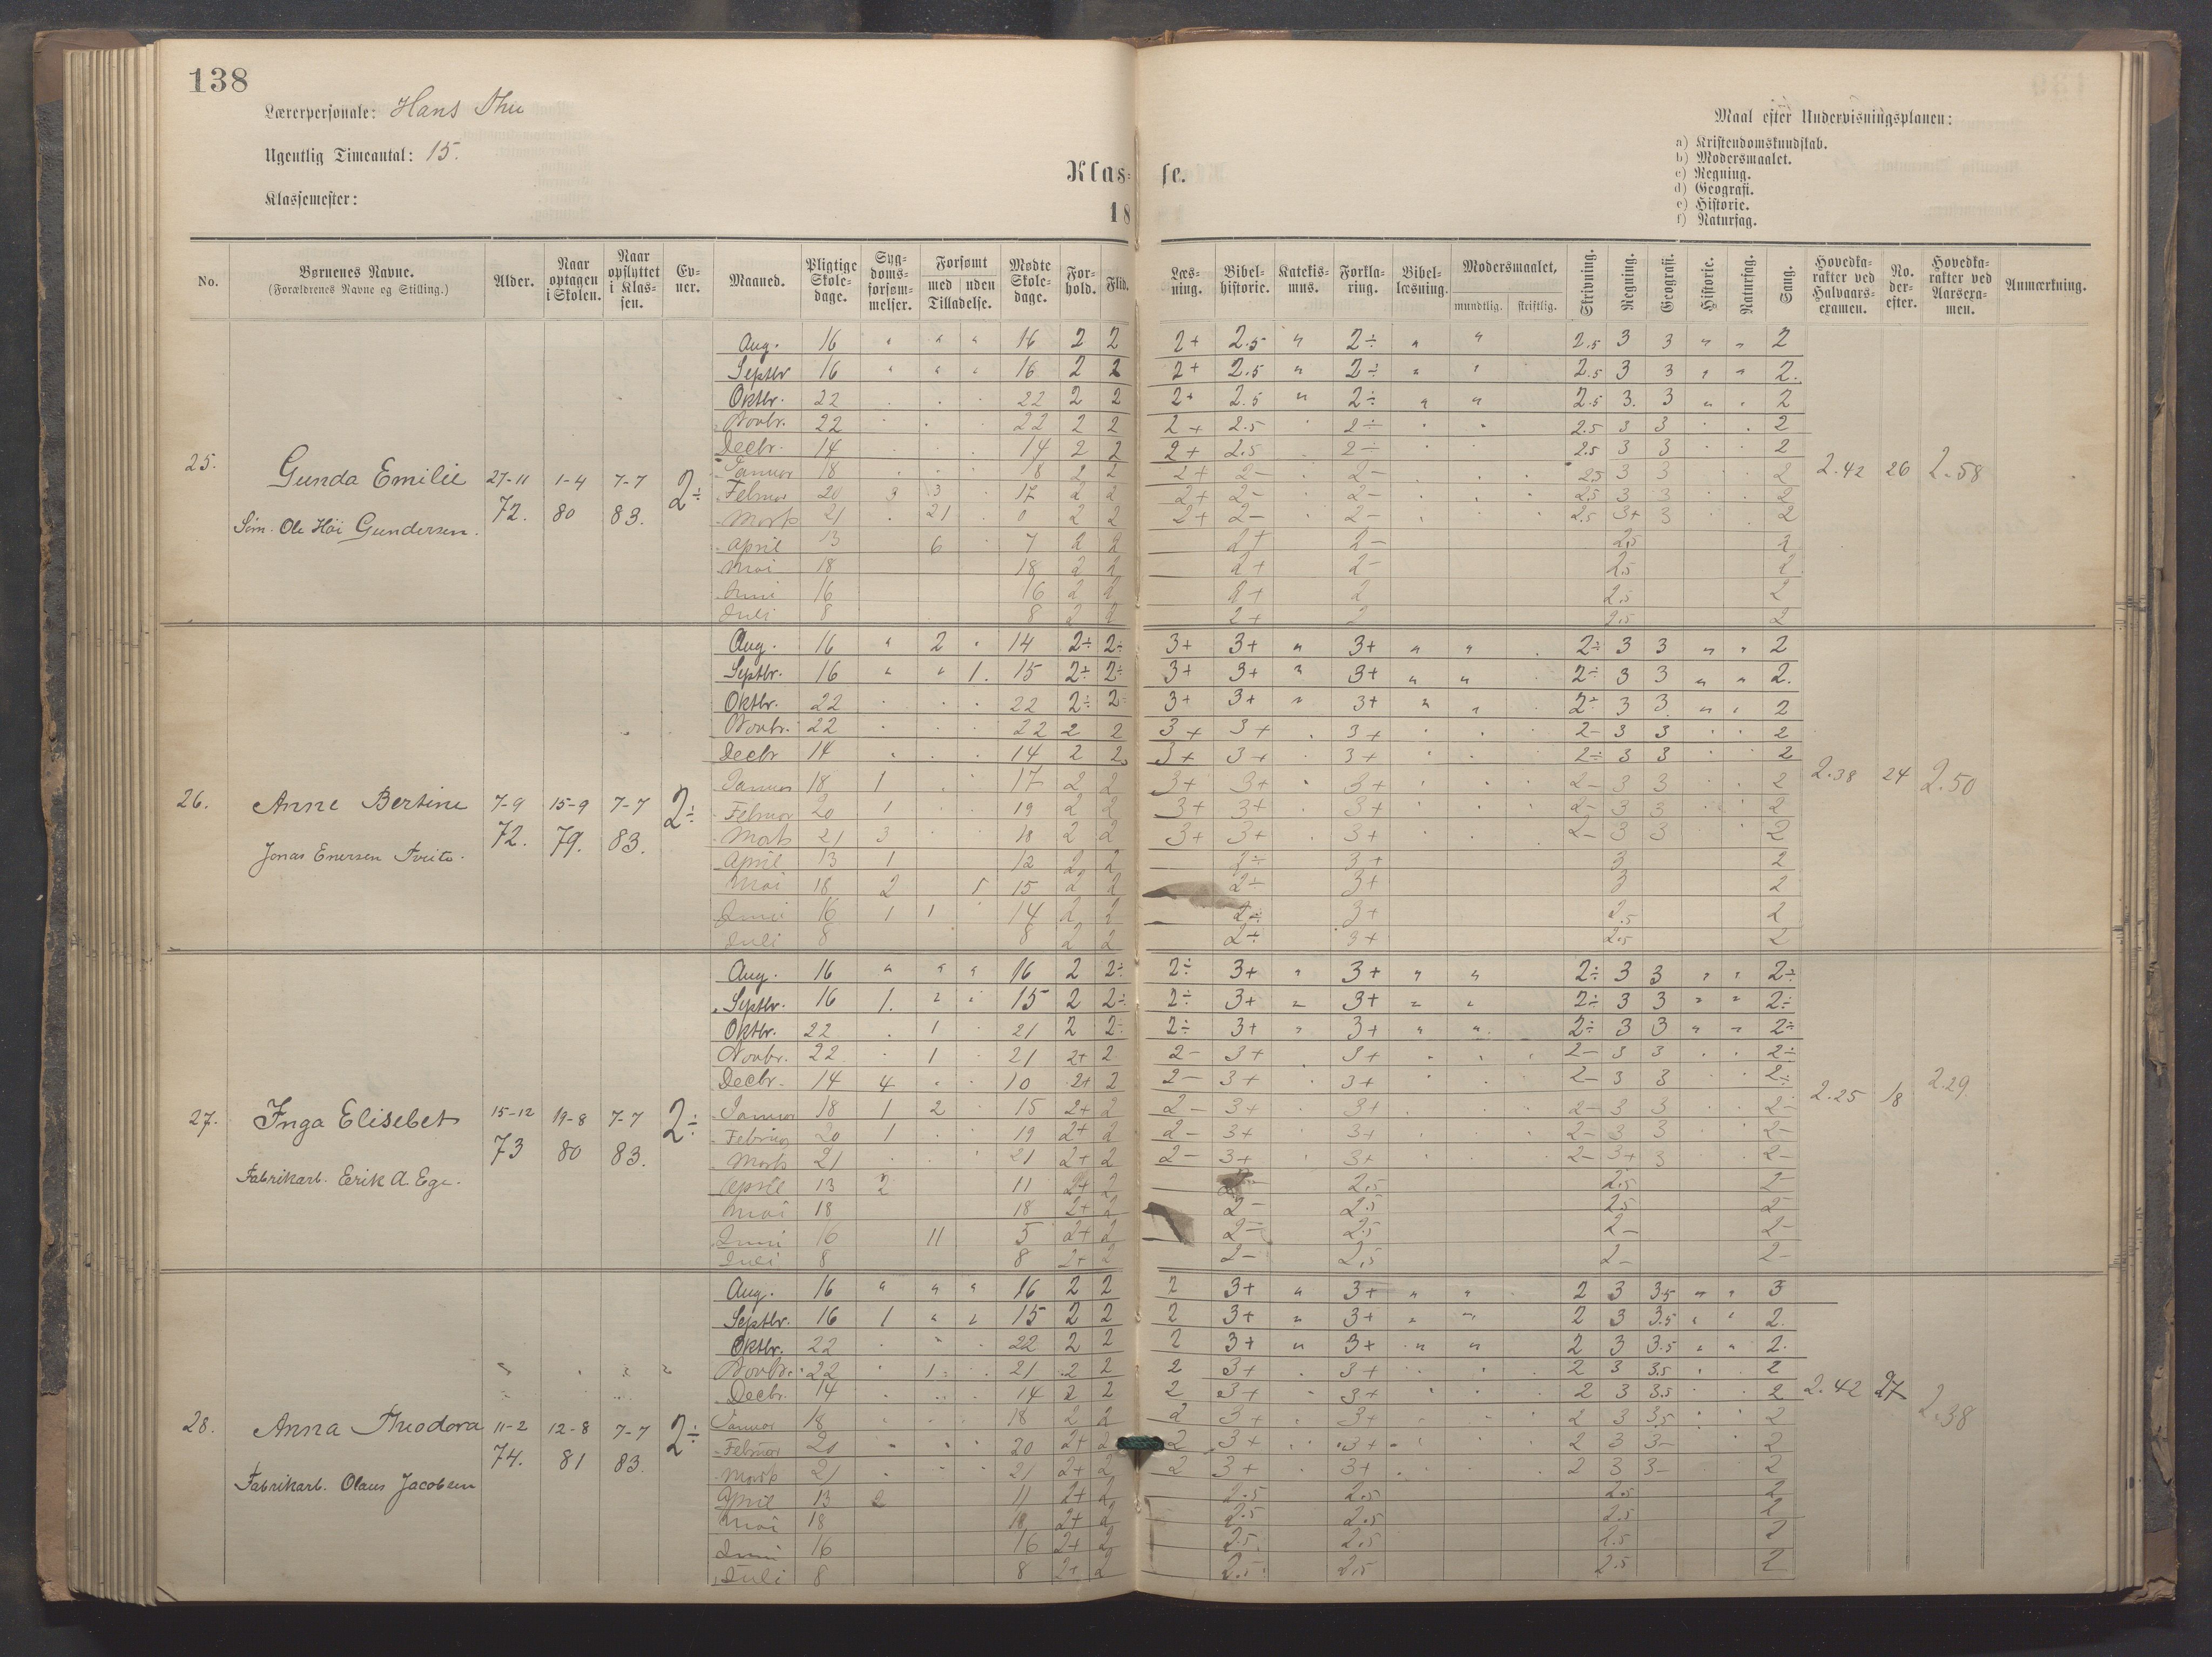 138
Lærerpersonale: Hans Thu
Ugentlig Timeantal: 15.
Klassemester:
Klas- se.
18
Maal efter Undervisningsplanen:
a) Kristendomskundskab.
b) Modersmaalet.
c) Regning.
d) Geografi.
e) Historie.
f) Naturfag.
No. Børnenes Navne. (Forældrenes Navne og Stilling.) Alder. Naar optagen i Skolen. Naar opflyttet i Klassen. Evner. Maaned. Pligtige Skoledage. Sygdomsforsømmelser. Forsømt med uden Tilladelse. Mødte Skoledage. Forhold. Flid. Læsning. Bibelhistorie. Katekismus. Forklaring. Bibellæsning. Modersmaalet, mundtlig. skriftlig. Skrivning. Regning. Geografi. Historie. Naturfag. Sang. Hovedkarakter ved Halvaarsexamen. No. derefter. Hovedkarakter ved Aarsexamen. Anmærkning.
25. Gunda Emilie 27-11 72. 1-4 80 7-7 83. 2÷ 2.42 26 2.58
Søm. Ole Høi Gundersen.
Aug. 16 " " " 16 2 2 2+ 2.5 " 2÷ " " 2.5 3 3 " " 2
Septbr 16 " " " 16 2 2 2+ 2.5 " 2÷ " " 2.5 3 3 " " 2.
Oktbr. 22 . . . 22 2 2 2+ 2.5 " 2÷ " " 2.5 3. 3 " . 2
Novbr. 22 . . 22 2 2 2+ 2.5 . 2÷ . . 2.5 3 3 . . 2
Decbr. 14 . . . 14 2 2 2+ 2.5 . 2÷ . . 2.5 3 3 . . 2
Januar 18 . . . 18 2 2 2+ 2- . 2- . . . 2.5 3 3 . . 2
Februar 20 3 3 . 17 2 2 2+ 2- . 2- . . . 2.5 3 3 . . 2
Marts 21 . 21 . 0 2 2 2+ 2- . 2- . . . 2.5 3+ 3 . . 2
April 13 6 7 2 2 2+ 2- 2.5 2
Mai 18 18 2 2 2+ 2- 2.5 2
Juni 16 16 2 2 2+ 2 2.5 2
Juli 8 8 2 2 2+ 2 2.5 2
26. Anne Bertine 7-9 72. 15-9 79. 7-7 83. 2÷ 2.38 24 2.50
Jonas Enersen Tveite.
Aug. 16 " 2 " 14 2÷ 2÷ 3+ 3+ " 3+ " " . 2÷ 3 3 " " 2
Septbr. 16 " " 1. 15 2÷ 2÷ 3+ 3+ " 3+ " " . 2÷ 3 3 " " 2.
Oktbr. 22 . . . 22 2÷ 2÷ 3+ 3+ " 3+ " " . 2÷ 3 3 " " 2
Novbr. 22 . . . 22 2 2 3+ 3+ . 3+ . . . 2- 3 3 . . 2
Decbr 14 . . . 14 2 2 3+ 3+ . 3+ . . 2÷ 3 3 . . 2
Januar 18 1 . 17 2 2 3+ 3+ . 3+ . . . 2- 3 3 . . 2
Februar 20 1 . . 19 2 2 3+ 3+ . 3+ . . . 2- 3 3 . . 2
Marts 21 3 . . 18 2 2 3+ 3+ . 3+ . . 2- 3 3 . . 2
April 13 1 12 2 2 2÷ 3+ 3 2
Mai 18 2 1 15 2 2 2÷ 3+ 3 2
Juni 16 1 1 14 2 2 2÷ 3+ 2.5 2
Juli 8 8 2 2 2÷ 3+ 2.5 2
27. Inga Elisebet 15-12 73 19-8 80 7-7 83. 2÷ 2.25 18 2.29
Fabrikarb. Eerik A. Ege.
Aug. 16 " " " 16 2 2÷ 2÷ 3+ " 3+ " " 2÷ 3 3 " " 2÷
Septbr. 16 1. " " 15 2 2÷ 2÷ 3+ " 3+ " " 2÷ 3 3 " " 2÷
Oktbr. 22 . 1 . 21 2 2÷ 2÷ 3+ " 3+ " " 2÷ 3 3 " " 2÷
Novbr. 22 . 1 . 21 2+ 2 2- 3+ . 3+ . . . 2- 3 3 . . 2÷
Decbr. 14 4 . . 10 2+ 2 2- 3+ . 3+ . . 2- 3 3 . . 2÷
Januar 18 1 2 . 15 2+ 2 2- 3+ . 3+ . . . 2- 3 3 . . 2-
Februar 20 1 . . 19 2+ 2 2- 3+ . 3+ . . . 2- 3 3 . . 2-
Marts 21 . . . 21 2+ 2 2- 3+ . 3+ . . . 2- 3+ 3 . . 2-
April 13 2 11 2+ 2 2.5 2.5 2-
Mai 18 18 2+ 2 2- 2.5 2.5 2-
Juni 16 11 5 2+ 2 2- 2.5 2- 2-
Juli 8 8 2+ 2 2- 2.5 2- 2-
28. Anna Theodora 11-2 74. 12-8 81 7-7 83. 2÷ 2.42 27 2.38
Fabrikarb. Olaus Jacobsen
Aug. 16 " " " 16 2 2 2 3+ " 3+ " " 2 3 3.5 " " 3
Septbr. 16 1 " " 15 2 2 2 3+ " 3+ " " 2 3 3.5 " " 2.
Oktbr. 22 . " . 22 2 2 2 3+ " 3+ " " 2 3 3.5 " " 2.
Novbr. 22 . 1 . 21 2 2 2 3+ . 3+ . . . 2 3 3.5 . . 2
Decbr. 14 . . . 14 2 2 2 3+ . 3+ . . . 2 3 3.5 . . 2
Januar 18 . . . 18 2 2 2 3+ . 3+ . . . 2 3 3.5 . . 2
Februar 20 . . . 20 2+ 2 2 3+ . 3+ . . . 2 3 3- . . 2
Marts 21 . . . 21 2+ 2 2 3+ . 3+ . . . 2 3 3- . . 2
April 13 2 11 2+ 2 2.5 2.5 2.5 2
Mai 18 18 2+ 2 2.5 2.5 2.5 2
Juni 16 16 2+ 2 2.5 2.5 2.5 2
Juli 8 8 2+ 2 2.5 2.5 2.5 2